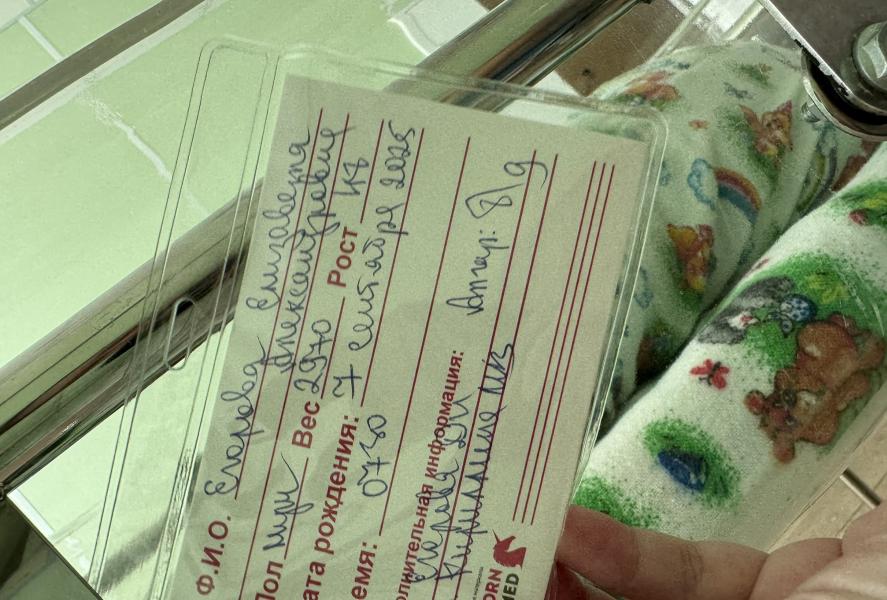 Ф.И.О. Егорова Елизавета
Александровна
Пол муж Вес 2970 Рост 48
ата рождения: 7 сентября 2025
емя: 0730
олнительная информация: Апгар: 8/9
Егорова
Кирилловна
ORN
MED